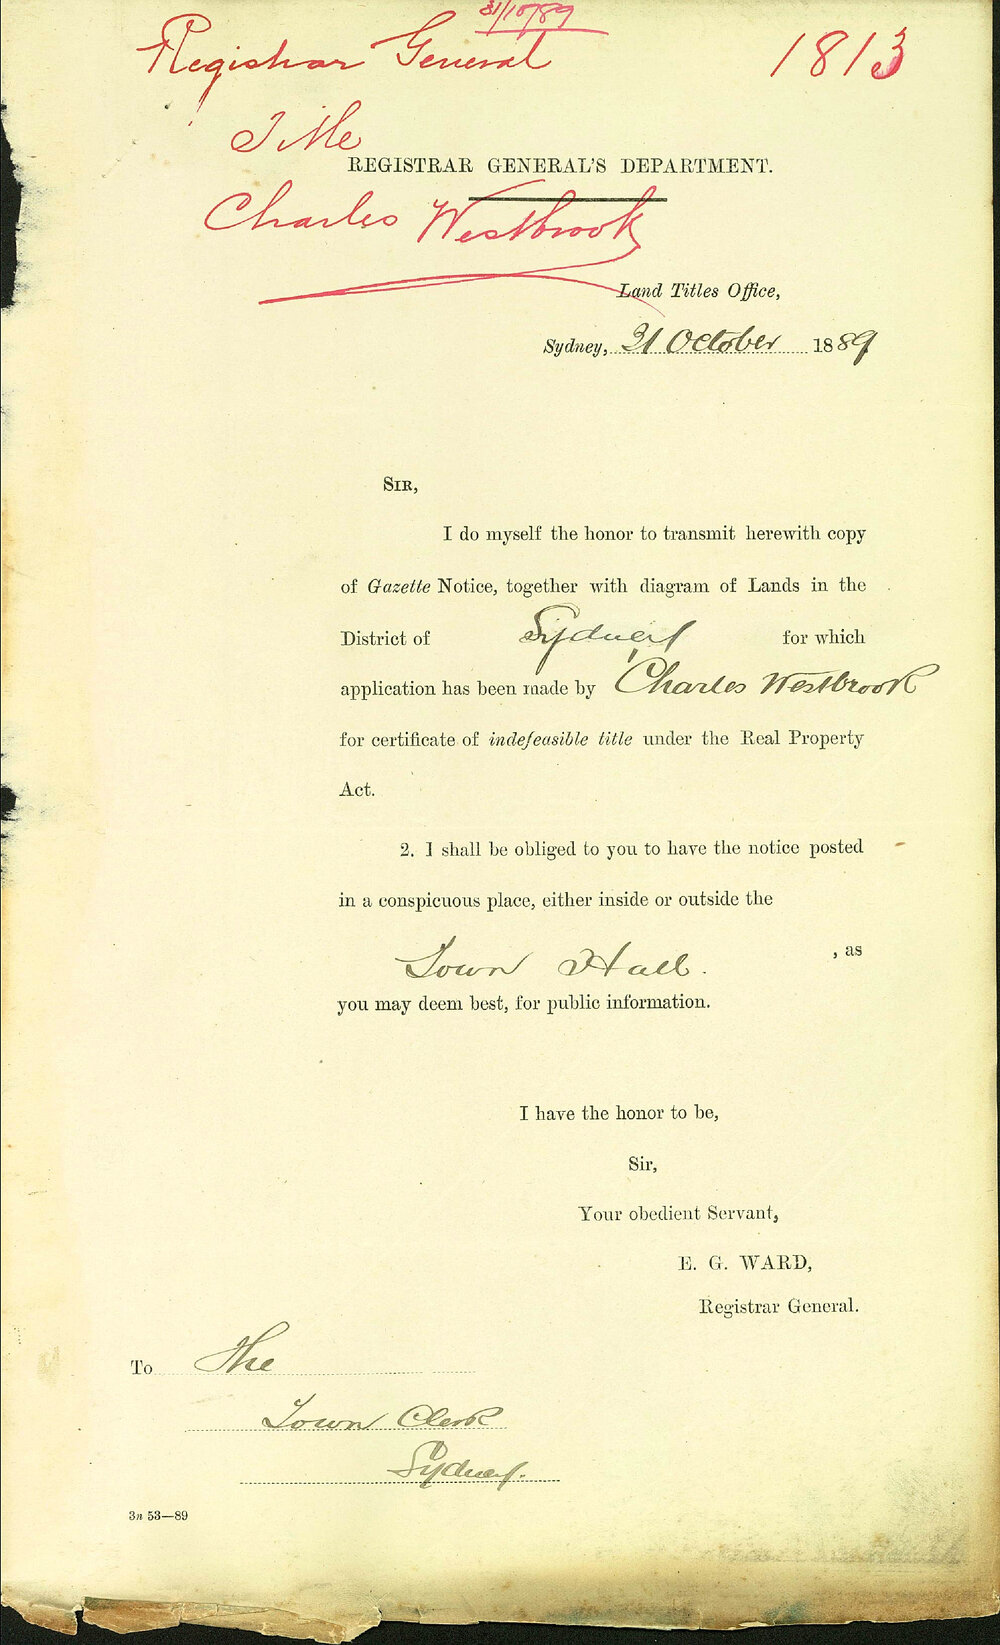 31/10/89
Registrar General 1813
Title
REGISTRAR GENERAL'S DEPARTMENT.
Charles Westbrook
Land Titles Office,
Sydney, 31 October 1889
SIR,
I do myself the honor to transmit herewith copy
of Gazette Notice, together with diagram of Lands in the
District of Sydney for which
application has been made by Charles Westbrook
for certificate of indefeasible title under the Real Property
Act.
2. I shall be obliged to you to have the notice posted
in a conspicuous place, either inside or outside the
Town Hall. , as
you may deem best, for public information.
I have the honor to be,
Sir,
Your obedient Servant,
E. G. WARD,
Registrar General.
To The
Town Clerk
Sydney.
3n 53—89